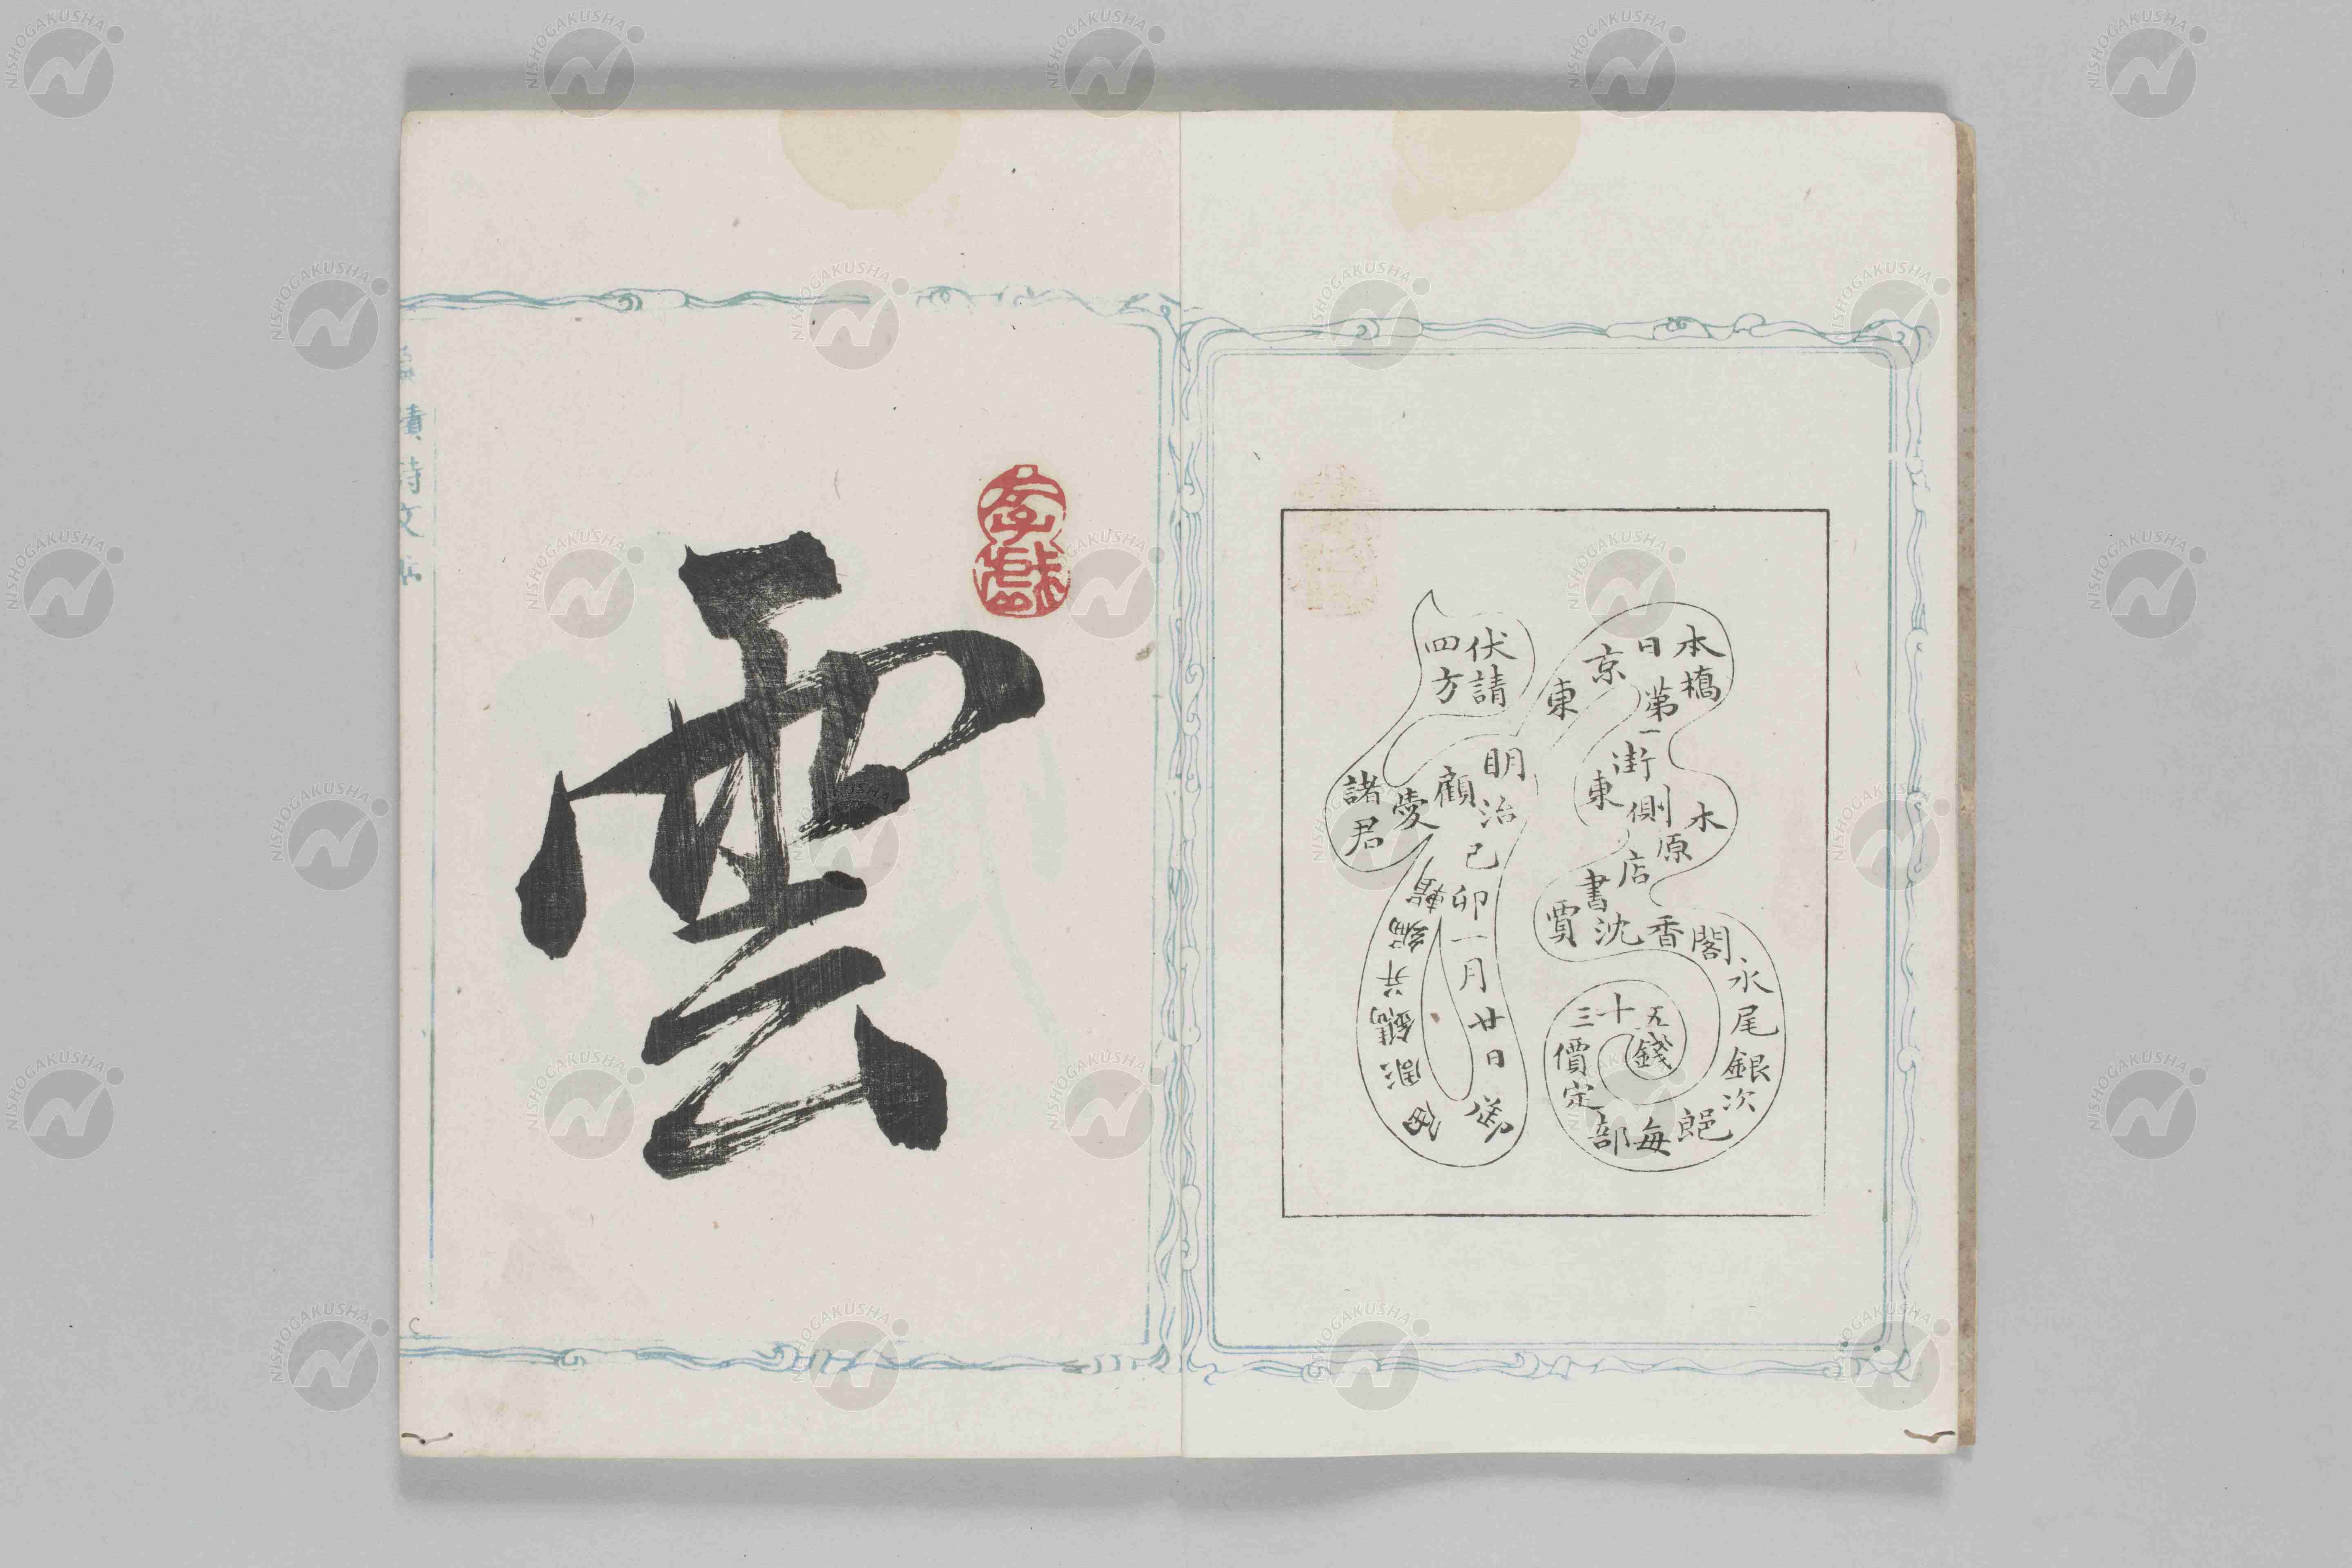 東京日本橋第一街東側木原店書賈沈香閣永尾銀次郎毎部定價三十五錢
明治己卯一月廿日御届彫鐫并編輯
伏請四方諸君愛顧
雲
詩文
NISHOGAKUSHA